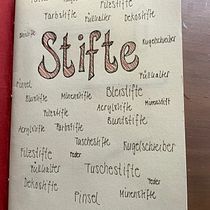 Filzstifte
Farbstifte Füllhalter Dekostifte
Stifte
Kugelschreiber
Pinsel Füllhalter
Blurstifte Minenstifte Bleistifte
Filzstifte Acrylstifte
Acrylstifte Farbstifte Buntstifte
Tuschestifte Kugelschreiber
Filzstifte Feder
Füllhalter Tuschestifte
Dekostifte Feder
Pinsel Minenstifte